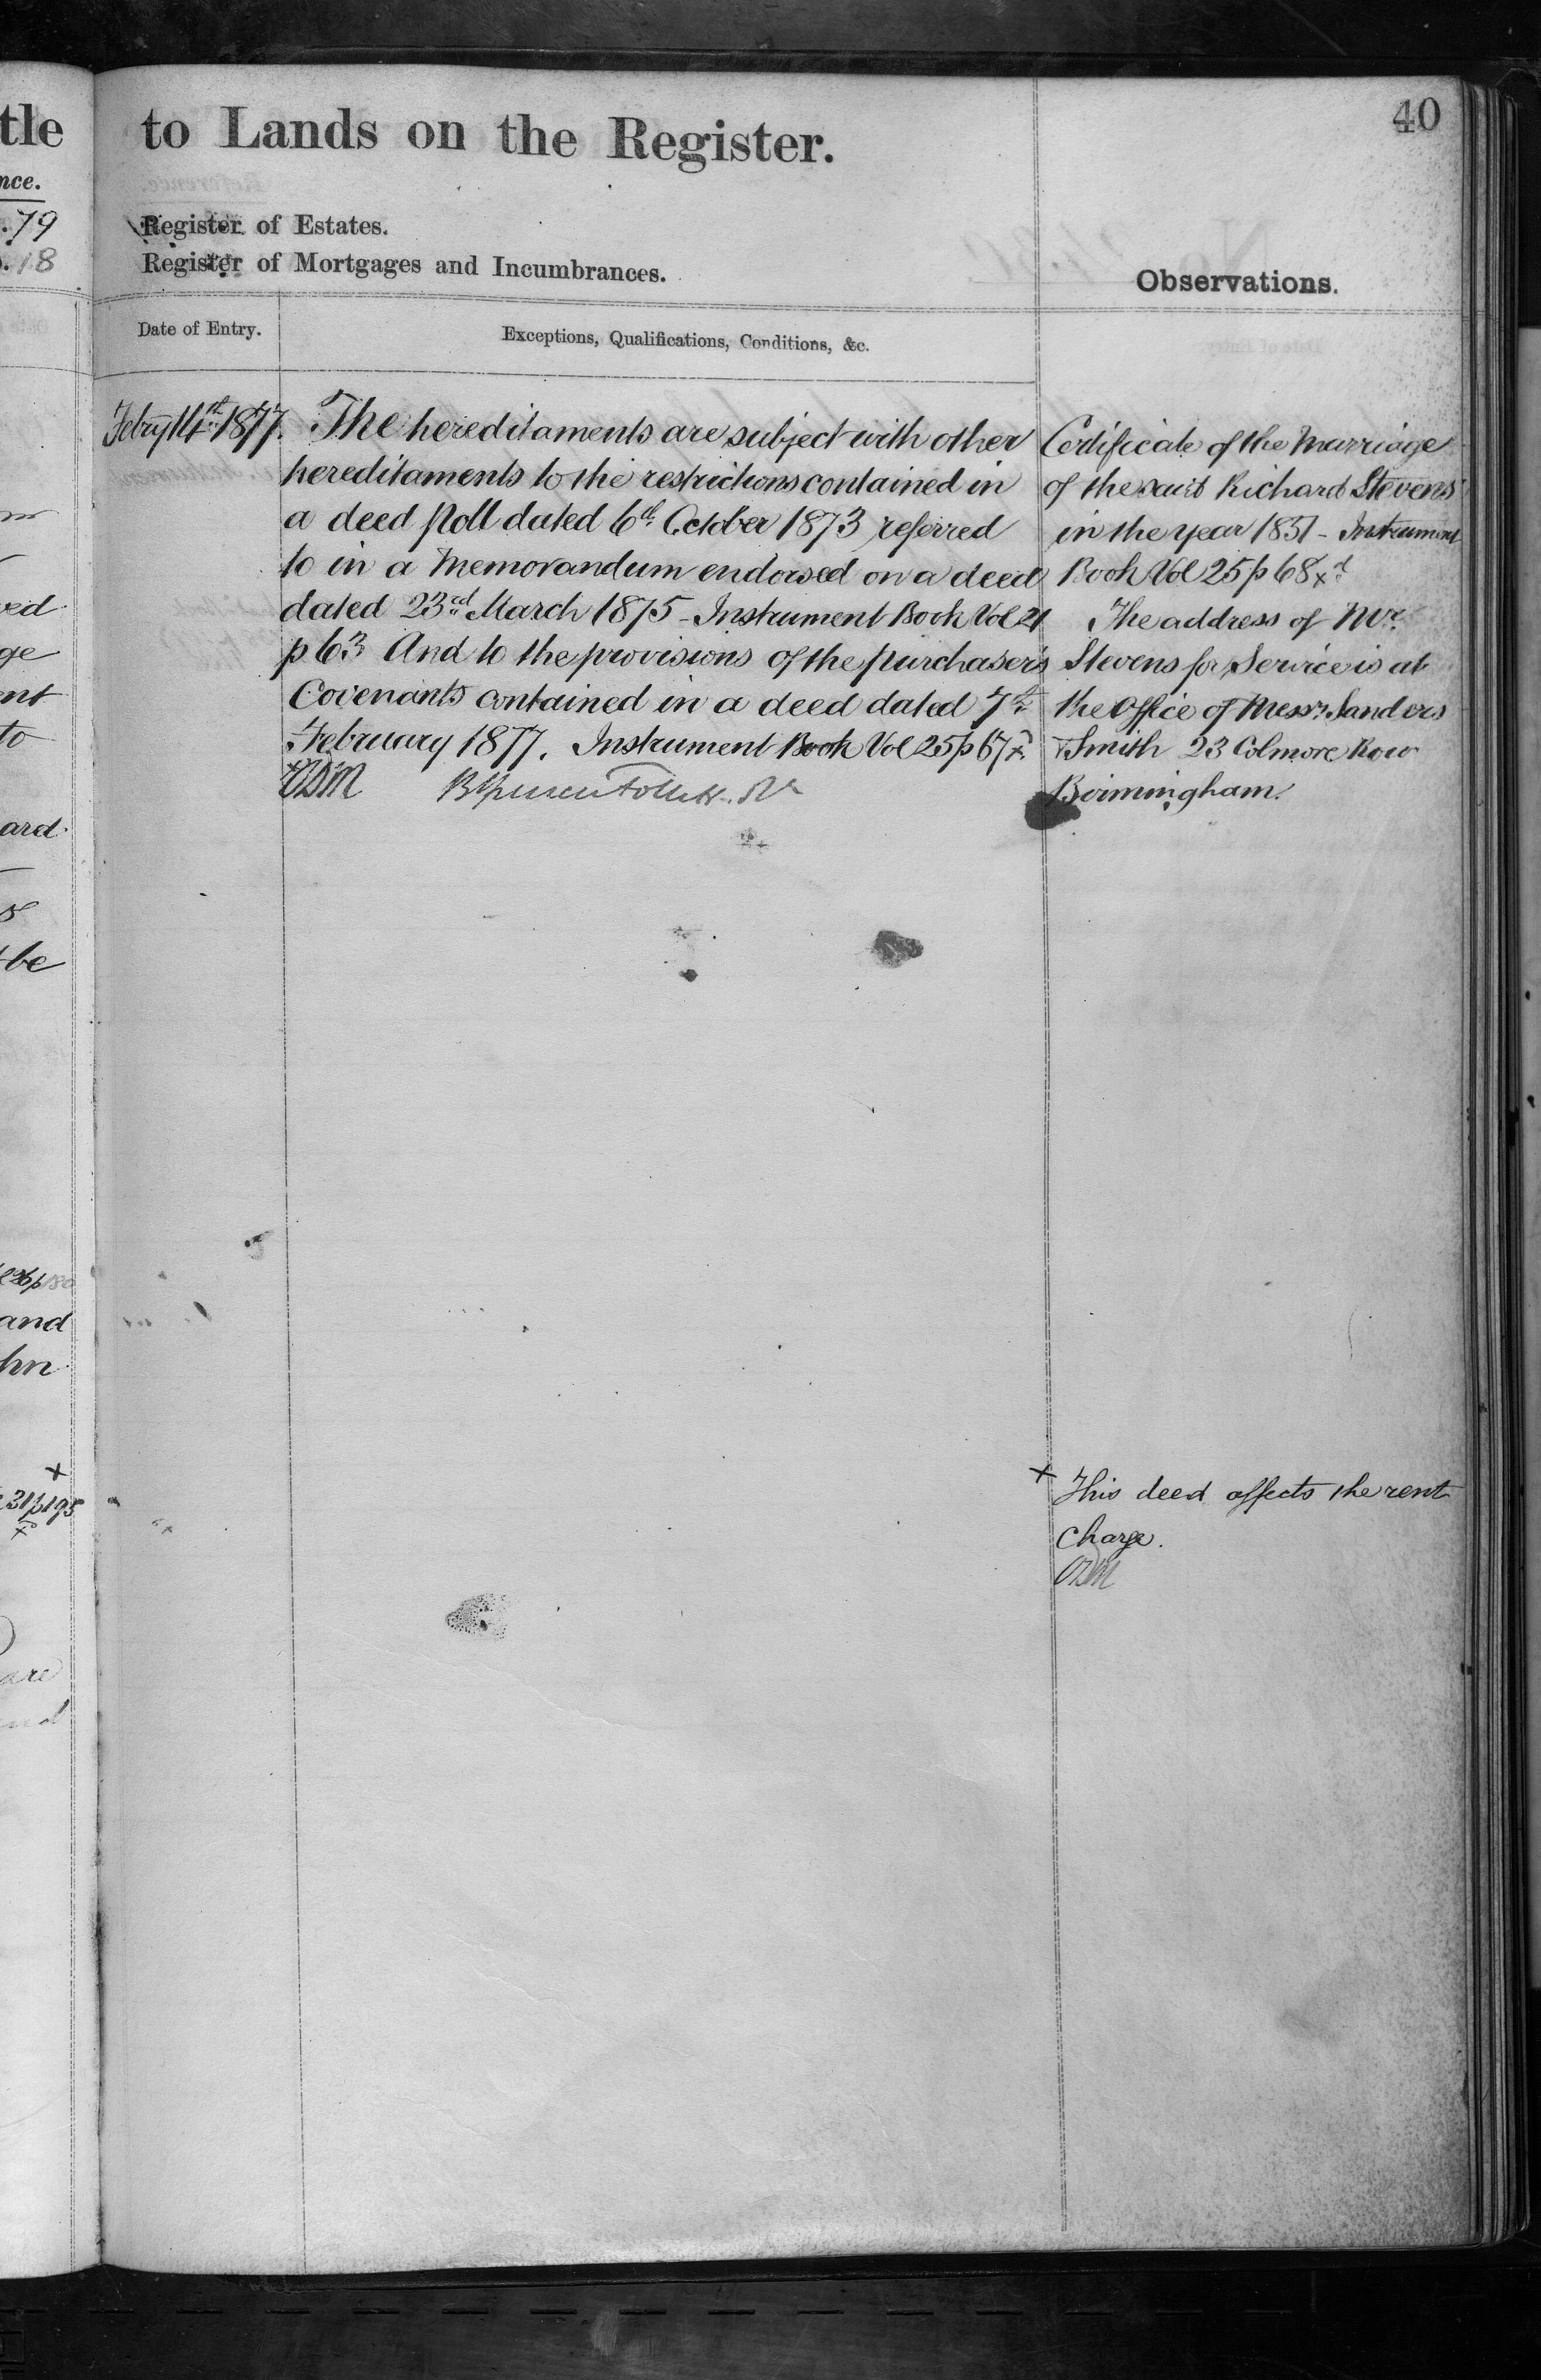 tle
nce.
.79
.18
to Lands on the Register.
40
Register of Estates.
Register of Mortgages and Incumbrances.
Observations.
Date of Entry.
Exceptions, Qualifications, Conditions, &c.
Febry 14th 1877.
The hereditaments are subject with other
hereditaments to the restrictions contained in
a deed poll dated 6th October 1873 referred
to in a Memorandum endorsed on a deed
dated 23rd March 1875 - Instrument Book Vol 21
p 63 And to the provisions of the purchaser's
Covenants contained in a deed dated 7th
February 1877. Instrument Book Vol 25 p 67 x
Certificate of the Marriage
of the said Richard Stevens
in the year 1851 - Instrument
Book Vol 25 p 68 x
The address of Mr.
Stevens for Service is at
the Office of Messrs. Sanders
& Smith 23 Colmore Row
Birmingham.
ved
ge
ent
to
ard
be
and
hn
x
31 p 195
x
are
x This deed affects the rent
charge.